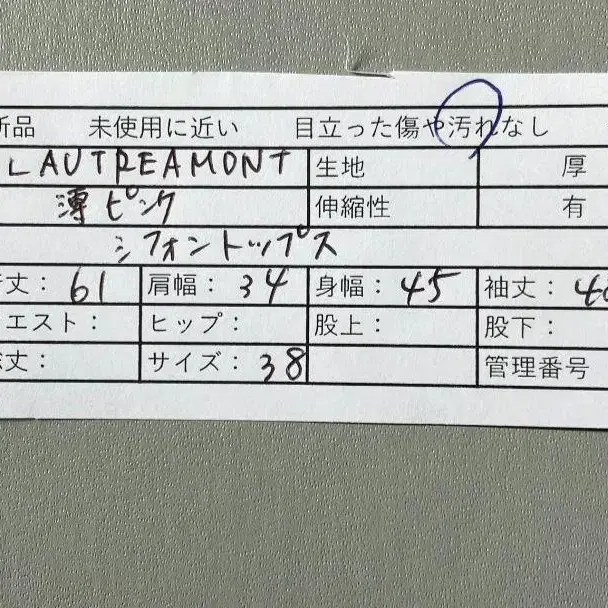 新品 未使用に近い 目立った傷や汚れなし
LAUTREAMONT 生地 厚
薄ピンク 伸縮性 有
シフォントップス
丈: 61 肩幅: 34 身幅: 45 袖丈:
エスト: ヒップ: 股上: 股下:
丈: サイズ: 38 管理番号